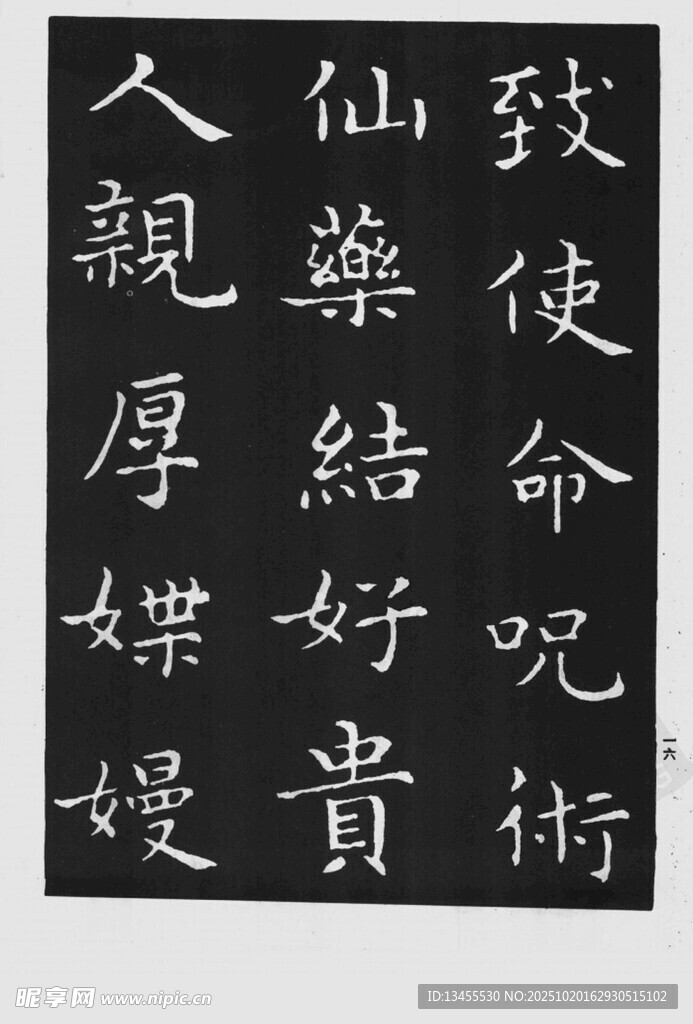 致使命呪術
仙藥結好貴
人親厚媟嫚
一六
昵享网 www.nipic.cn
ID:13455530 NO:20251020162930515102